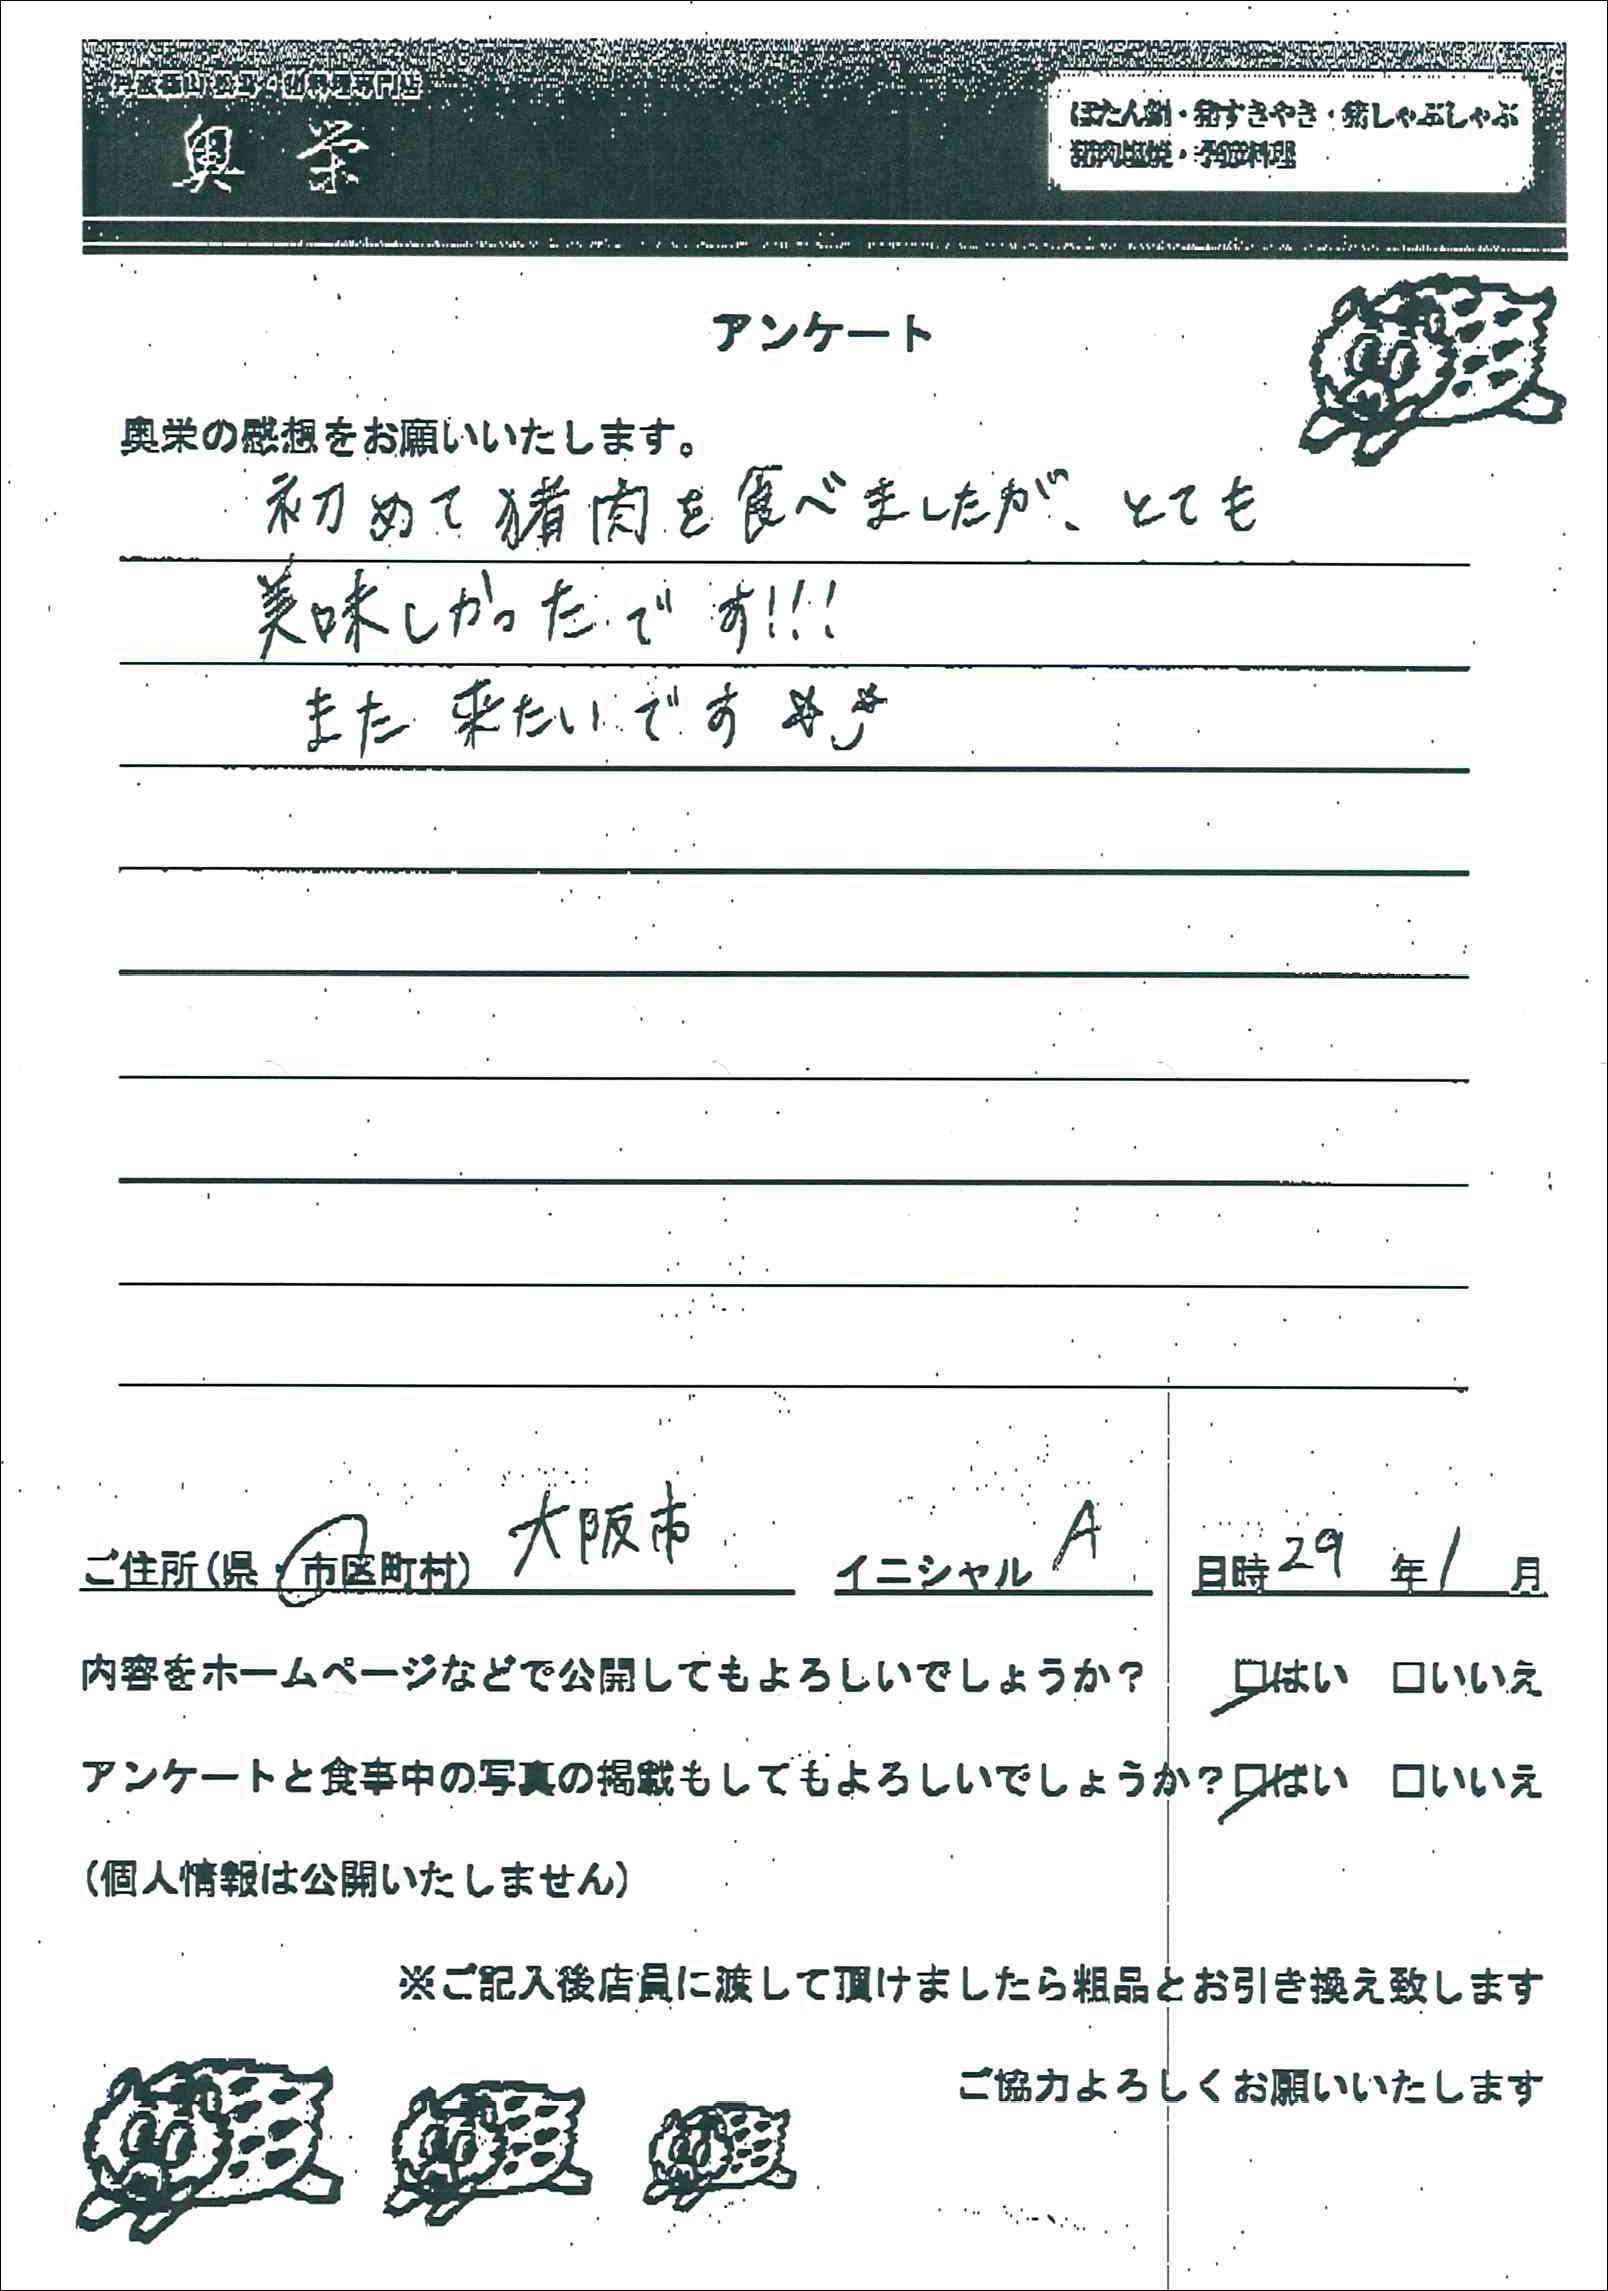 奥栄
ぼたん鍋・猪すきやき・猪しゃぶしゃぶ
アンケート
奥栄の感想をお願いいたします。
初めて猪肉を食べましたが、とても
美味しかったです!!!
また来たいです
ご住所(県・市区町村) 大阪市 イニシャル A 日時 29 年 1 月
内容をホームページなどで公開してもよろしいでしょうか? □はい □いいえ
アンケートと食事中の写真の掲載もしてもよろしいでしょうか? □はい □いいえ
(個人情報は公開いたしません)
※ご記入後店員に渡して頂けましたら粗品とお引き換え致します
ご協力よろしくお願いいたします